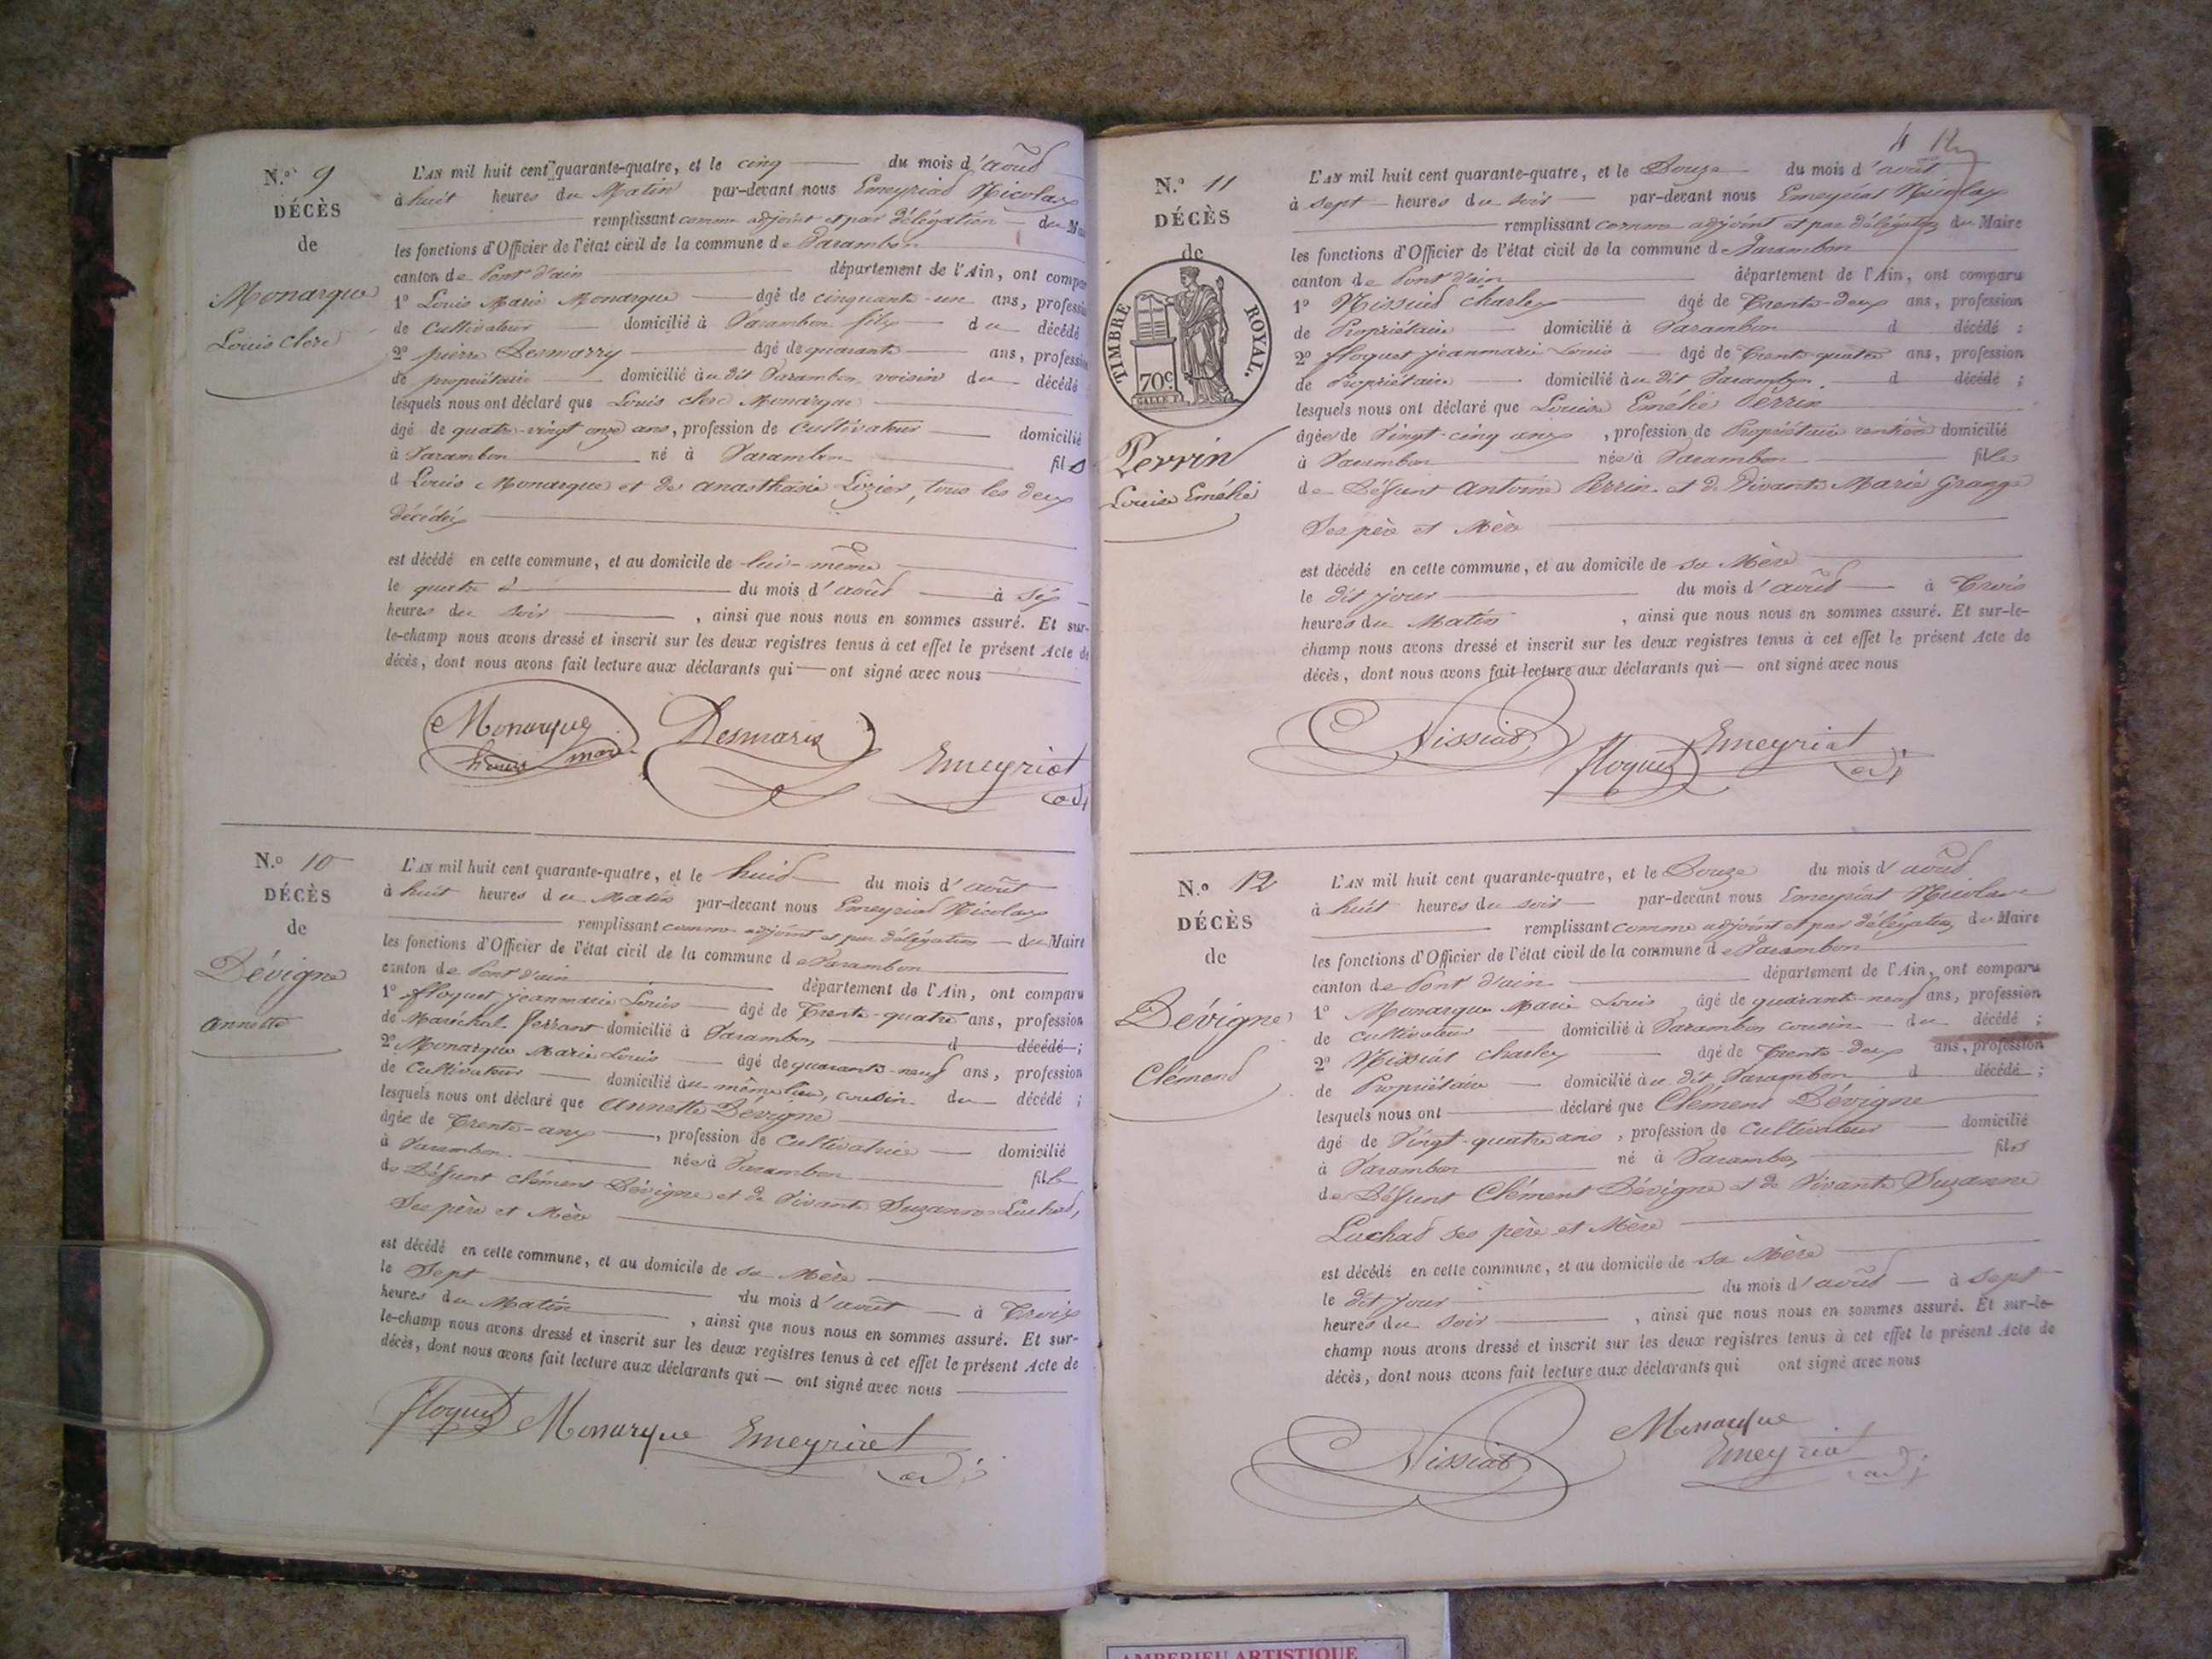 N.º 9
DÉCÈS
de
Monarque
Louis Clerc
L'AN mil huit cent quarante-quatre, et le cinq du mois d'août
à huit heures du Matin par-devant nous Emeyriat Nicolas
remplissant comme adjoint et par délégation du Mai
les fonctions d'Officier de l'état civil de la commune de Varambon
canton de Pont d'ain département de l'Ain, ont compar
1º Louis Marie Monarque âgé de cinquante-un ans, professi
de Cultivateur domicilié à Varambon fils du décédé
2º pierre Desmarry âgé de quarante ans, profession
de propriétaire domicilié au dit Varambon, voisin du décédé
lesquels nous ont déclaré que Louis clerc Monarque
âgé de quatre-vingt onze ans, profession de Cultivateur domicilié
à Varambon né à Varambon fils
d Louis Monarque et de anasthasie Lozier, tous les deux
décédés
est décédé en cette commune, et au domicile de lui-même
le quatre du mois d'août à six
heures du soir, ainsi que nous nous en sommes assuré. Et sur-
le-champ nous avons dressé et inscrit sur les deux registres tenus à cet effet le présent Acte de
décès, dont nous avons fait lecture aux déclarants qui — ont signé avec nous
Monarque Desmaris
Louis marie Emeyriat
adj
N.º 10
DÉCÈS
de
Dévigne
annette
L'AN mil huit cent quarante-quatre, et le huit du mois d'août
à huit heures du Matin par-devant nous Emeyriat Nicolas
remplissant comme adjoint et par délégation du Maire
les fonctions d'Officier de l'état civil de la commune de Varambon
canton de Pont d'ain département de l'Ain, ont comparu
1º floquet jeanmarie Louis âgé de Trente-quatre ans, profession
de Maréchal ferrant domicilié à Varambon d décédé;
2º Monarque Marie Louis âgé de quarante-neuf ans, profession
de Cultivateur domicilié au même lieu, cousin du décédé;
lesquels nous ont déclaré que annette Dévigne
âgée de Trente-ans, profession de Cultivatrice domicilié
à Varambon née à Varambon fille
de Défunt clément Dévigne et de Vivante Suzanne Luchad,
Ses père et Mère
est décédé en cette commune, et au domicile de sa Mère
le Sept du mois d'août à Trois
heures du Matin, ainsi que nous nous en sommes assuré. Et sur-
le-champ nous avons dressé et inscrit sur les deux registres tenus à cet effet le présent Acte de
décès, dont nous avons fait lecture aux déclarants qui — ont signé avec nous
floquet Monarque Emeyriat
adj
4
N.º 11
DÉCÈS
de
TIMBRE ROYAL.
70c
Perrin
Louise Emélie
L'AN mil huit cent quarante-quatre, et le Douze du mois d'août
à sept heures du soir par-devant nous Emeyriat Nicolas
remplissant comme adjoint et par délégation du Maire
les fonctions d'Officier de l'état civil de la commune de Varambon
canton de Pont d'ain département de l'Ain, ont comparu
1º Nissiat charles âgé de Trente-deux ans, profession
de Propriétaire domicilié à Varambon d décédé;
2º floquet jeanmarie Louis âgé de Trente-quatre ans, profession
de Propriétaire domicilié au dit Varambon. d décédé;
lesquels nous ont déclaré que Louise Emélie Perrin
âgée de Vingt-cinq ans, profession de Propriétaire rentière domicilié
à Varambon née à Varambon fille
de Défunt Antoine Perrin et de Vivante Marie Grange
Ses père et Mère
est décédé en cette commune, et au domicile de sa Mère
le dit jour du mois d'août à Trois
heures du Matin, ainsi que nous nous en sommes assuré. Et sur-le-
champ nous avons dressé et inscrit sur les deux registres tenus à cet effet le présent Acte de
décès, dont nous avons fait lecture aux déclarants qui — ont signé avec nous
Nissiat floquet Emeyriat
adj
N.º 12
DÉCÈS
de
Dévigne
Clément
L'AN mil huit cent quarante-quatre, et le Douze du mois d'août
à huit heures du soir par-devant nous Emeyriat Nicolas
remplissant comme adjoint et par délégation du Maire
les fonctions d'Officier de l'état civil de la commune de Varambon
canton de Pont d'ain département de l'Ain, ont comparu
1º Monarque Marie Louis âgé de quarante-neuf ans, profession
de cultivateur domicilié à Varambon cousin du décédé;
2º Nissiat charles âgé de Trente-deux ans, profession
de Propriétaire domicilié au dit Varambon d décédé;
lesquels nous ont déclaré que Clément Dévigne
âgé de Vingt-quatre ans, profession de Cultivateur domicilié
à Varambon né à Varambon fils
de Défunt Clément Dévigne et de Vivante Suzanne
Luchad ses père et Mère
est décédé en cette commune, et au domicile de sa Mère
le dit jour du mois d'août à sept
heures du soir, ainsi que nous nous en sommes assuré. Et sur-le-
champ nous avons dressé et inscrit sur les deux registres tenus à cet effet le présent Acte de
décès, dont nous avons fait lecture aux déclarants qui ont signé avec nous
Nissiat Monarque
Emeyriat
adj
AMBERIEU ARTISTIQUE